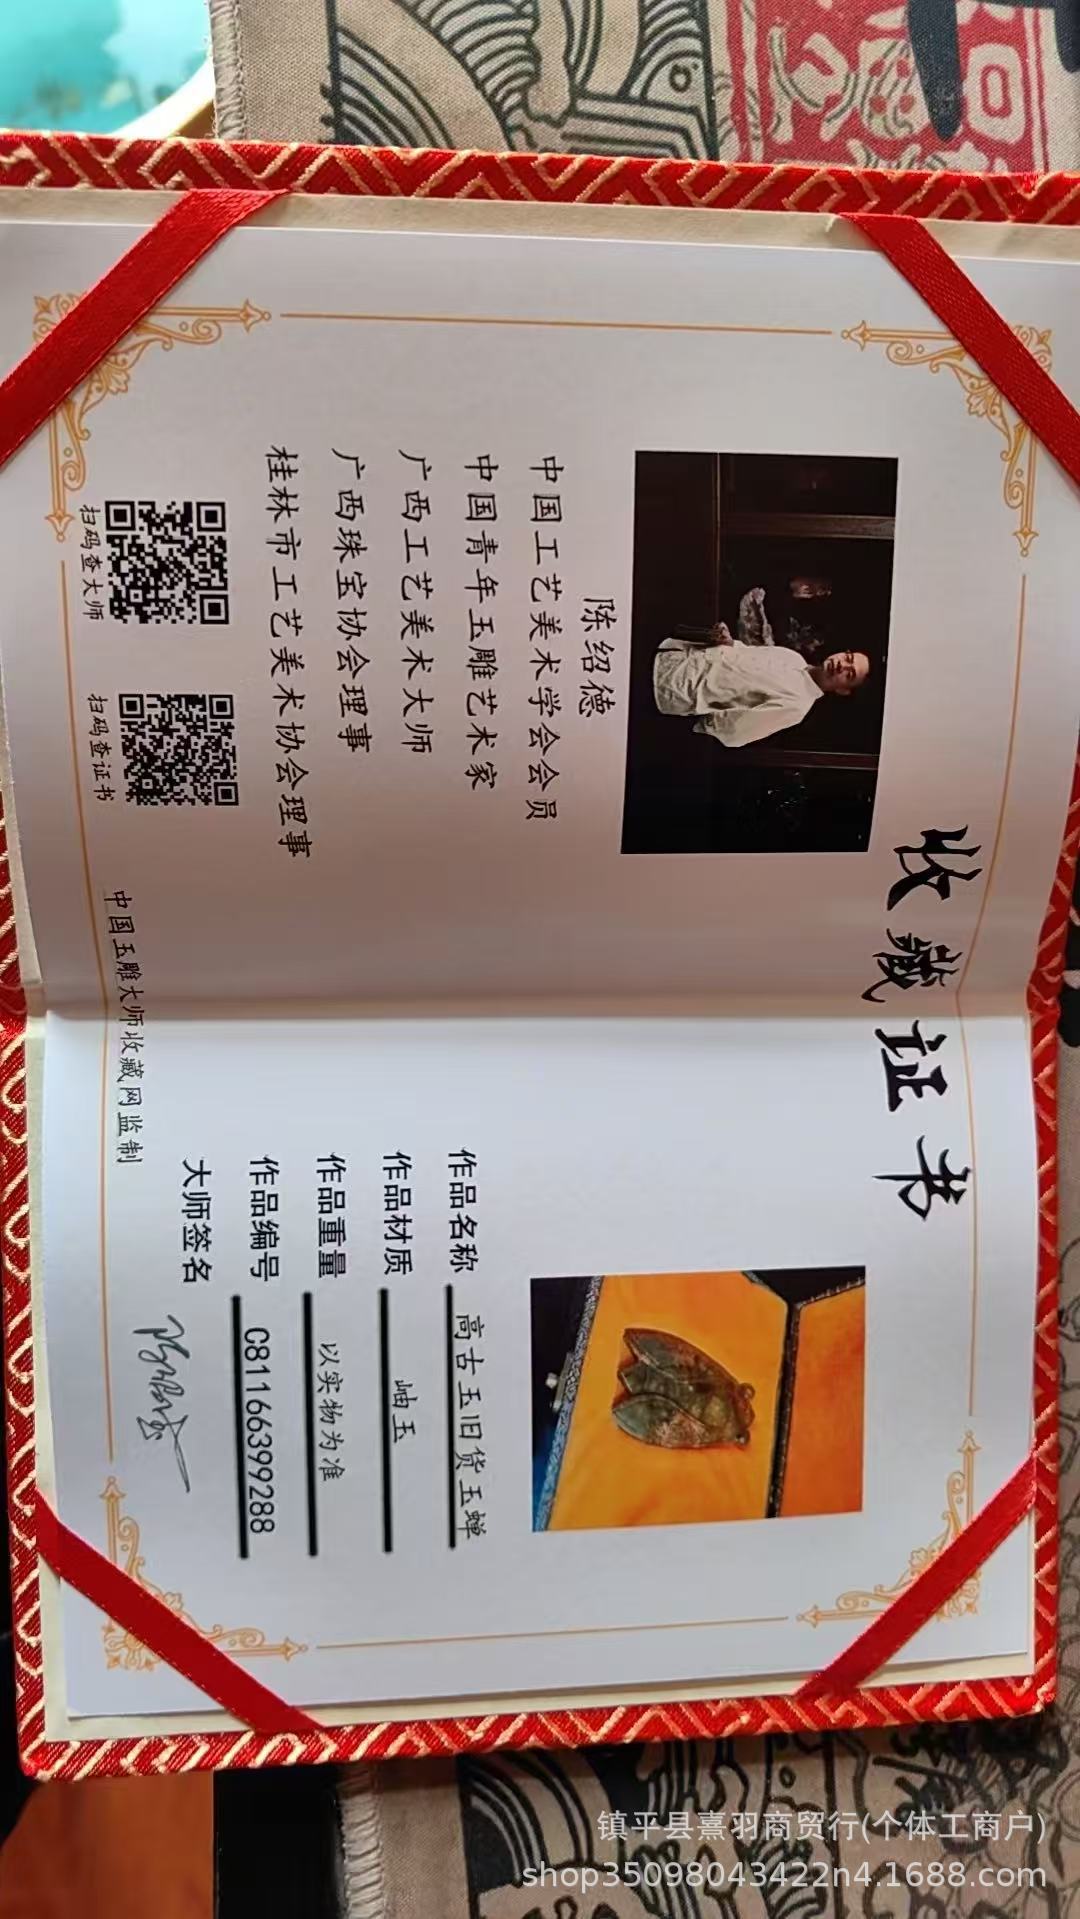 收藏证书
陈绍德
中国工艺美术学会会员
中国青年玉雕艺术家
广西工艺美术大师
广西珠宝协会理事
桂林市工艺美术协会理事
扫码查大师
扫码查证书
作品名称 高古玉旧货玉蝉
作品材质 岫玉
作品重量 以实物为准
作品编号 C81166399288
大师签名
中国玉雕大师收藏网监制
镇平县熹羽商贸行(个体工商户)
shop35098043422n4.1688.com